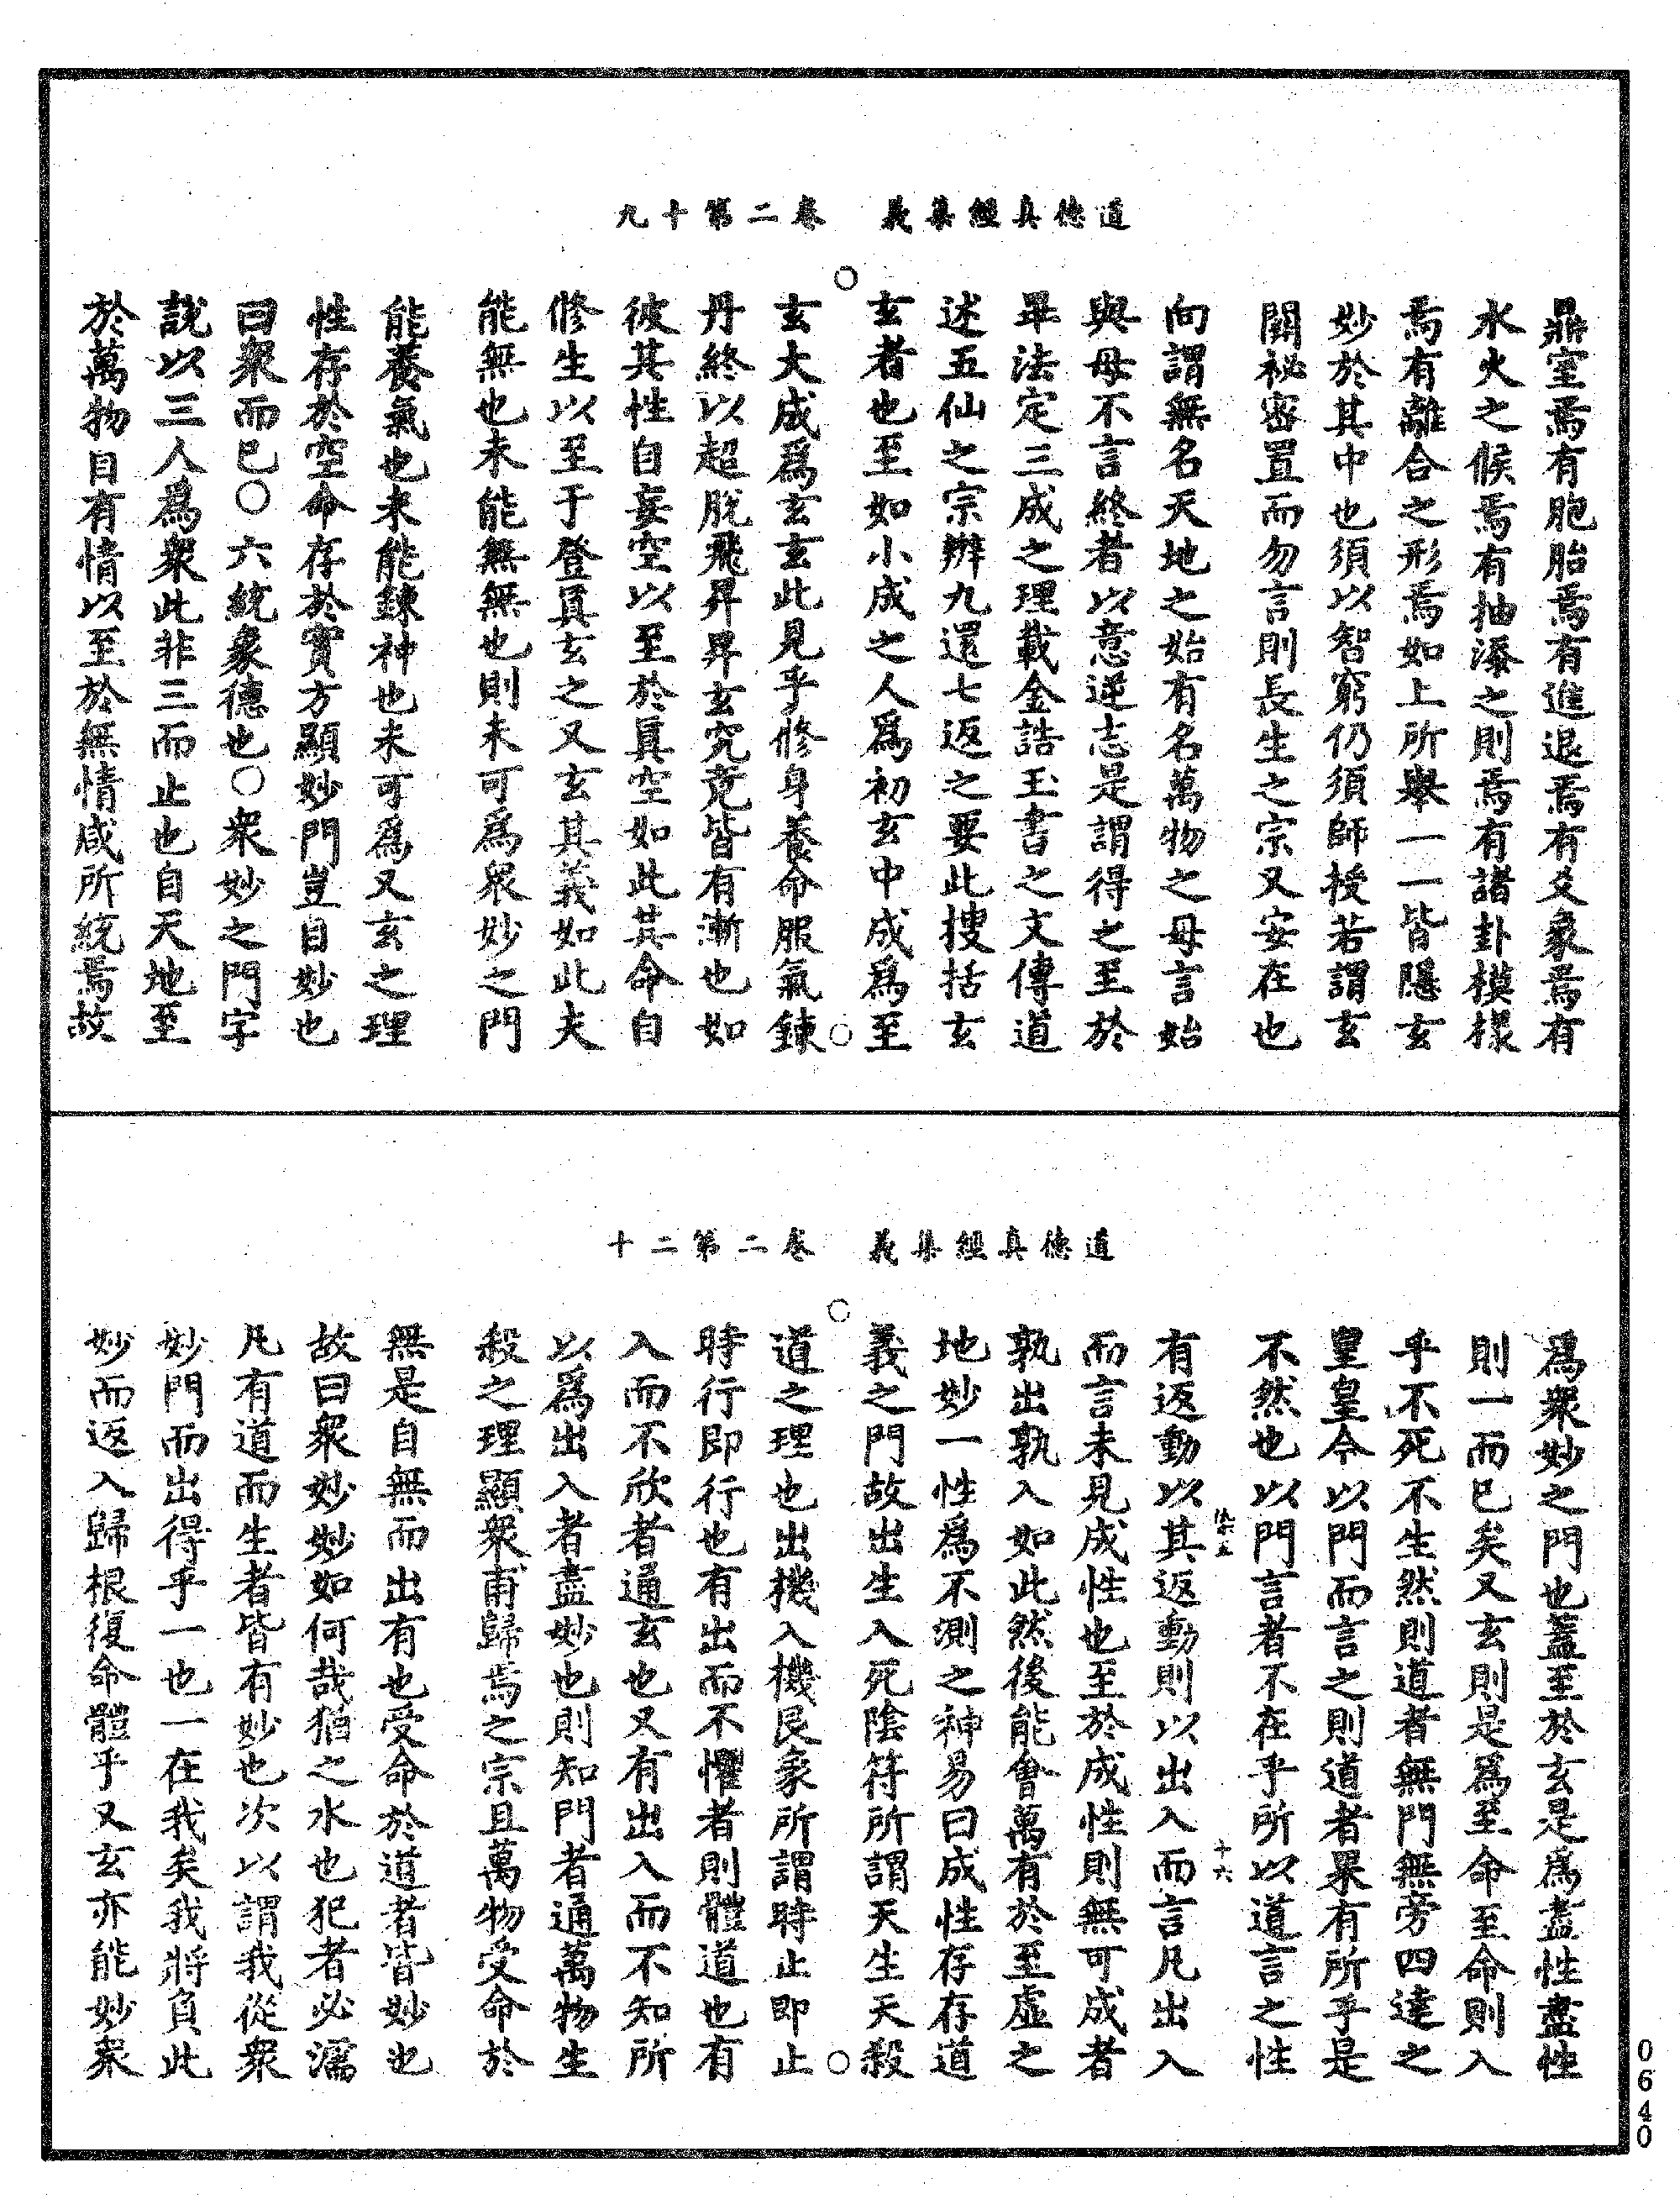 道德真經集義 卷二第十九
鼎室焉有胞胎焉有進退焉有爻象焉有
水火之候焉有抽添之則焉有諸卦模樣
焉有離合之形焉如上所舉一一皆隱玄
妙於其中也須以智窮仍須師授若謂玄
關祕密置而勿言則長生之宗又安在也
向謂無名天地之始有名萬物之母言始
與母不言終者以意逆志是謂得之至於
畢法定三成之理載金誥玉書之文傳道
述五仙之宗辦九還七返之要此搜括玄
玄者也至如小成之人爲初玄中成爲至
玄大成爲玄玄此見乎修身養命服氣鍊
丹終以超脫飛昇昇玄究竟皆有漸也如
彼其性自妄空以至於眞空如此其命自
修生以至于登眞玄之又玄其義如此夫
能無也未能無無也則未可爲衆妙之門
能養氣也未能鍊神也未可爲又玄之理
性存於空命存於實方顯妙門豈自妙也
曰衆而已○六統衆德也○衆妙之門字
說以三人爲衆此非三而止也自天地至
於萬物自有情以至於無情咸所統焉故
道德真經集義 卷二第二十
爲衆妙之門也蓋至於玄是爲盡性盡性
則一而已矣又玄則是爲至命至命則入
乎不死不生然則道者無門無旁四達之
皇皇今以門而言之則道者果有所乎是
不然也以門言者不在乎所以道言之性
有返動以其返動則以出入而言凡出入
而言未見成性也至於成性則無可成者
孰出孰入如此然後能會萬有於至虛之
地妙一性爲不測之神易曰成性存存道
義之門故出生入死陰符所謂天生天殺
道之理也出機入機艮象所謂時止即止
時行即行也有出而不懼者則體道也有
入而不欣者通玄也又有出入而不知所
以爲出入者盡妙也則知門者通萬物生
殺之理顯衆甫歸焉之宗且萬物受命於
無是自無而出有也受命於道者皆妙也
故曰衆妙妙如何哉猶之水也犯者必濡
凡有道而生者皆有妙也次以謂我從衆
妙門而出得乎一也一在我矣我將負此
妙而返入歸根復命體乎又玄亦能妙衆
十六
0640